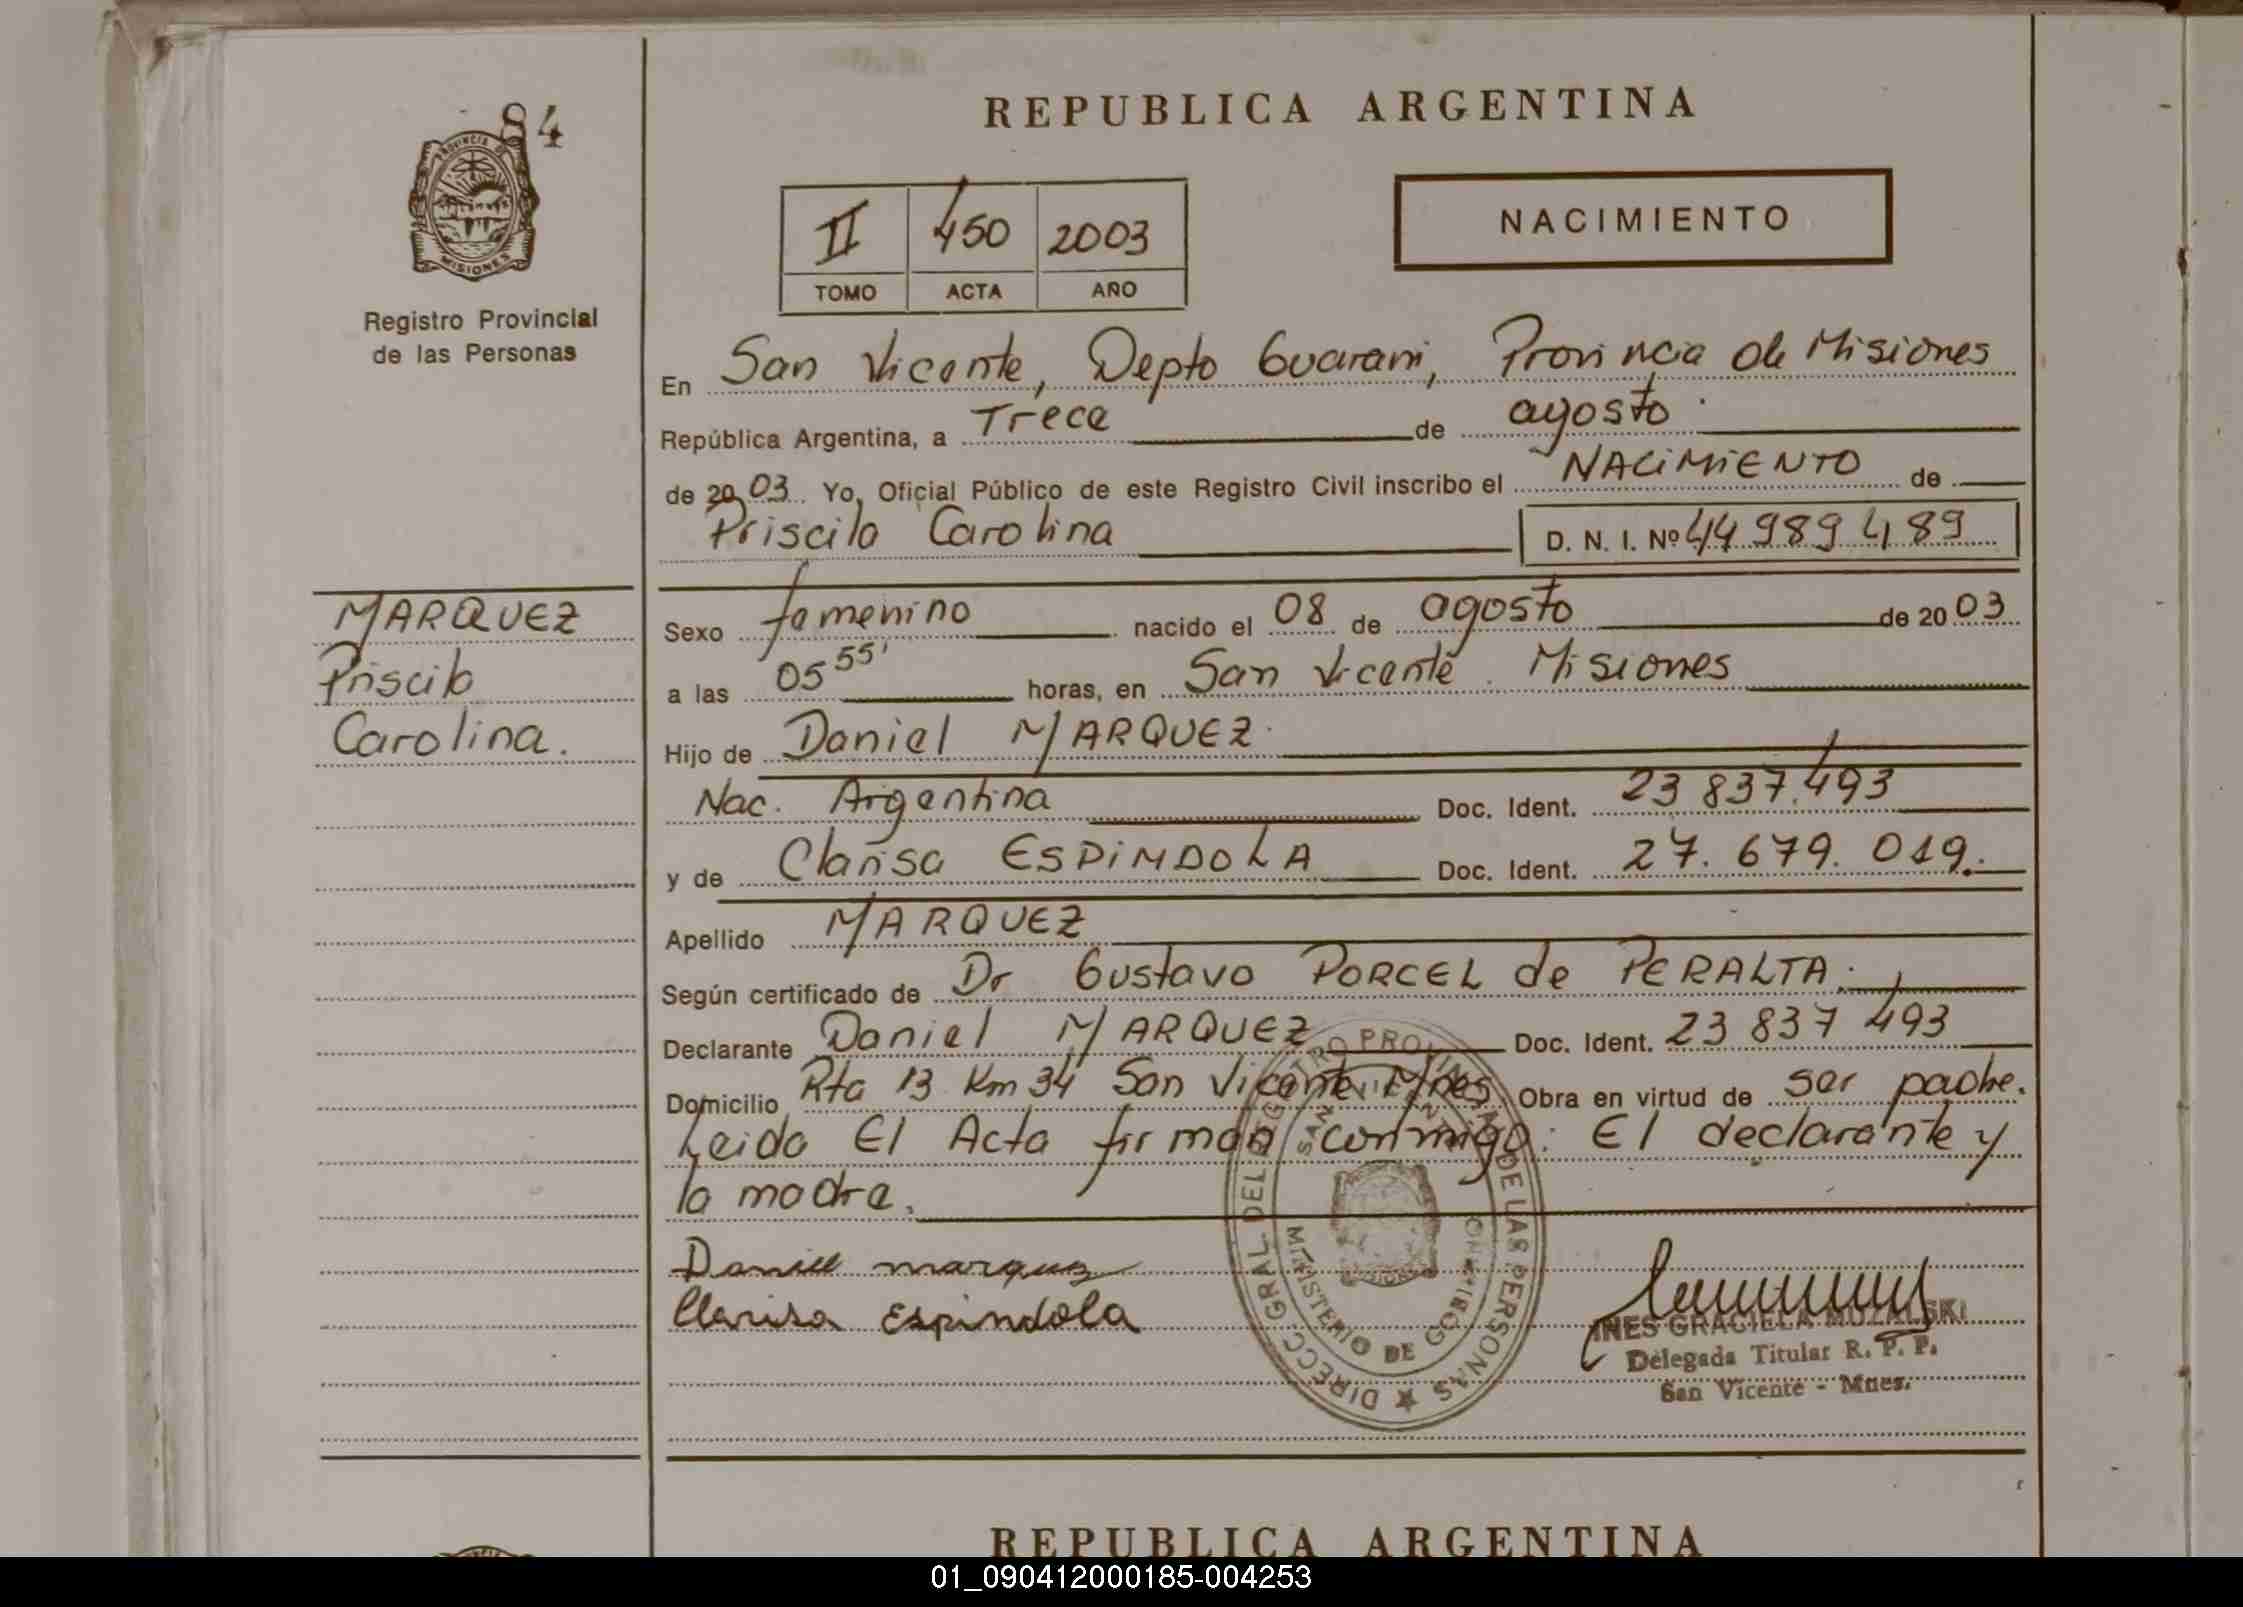 84
PROVINCIA DE
MISIONES
Registro Provincial
de las Personas
REPUBLICA ARGENTINA
NACIMIENTO
II 450 2003
TOMO ACTA AÑO
En San Vicente, Depto Guarani, Provincia de Misiones
República Argentina, a Trece de agosto
de 2003 Yo, Oficial Público de este Registro Civil inscribo el NACIMIENTO de
Priscila Carolina D. N. I. Nº 44 989 489
MARQUEZ
Priscila
Carolina.
Sexo femenino nacido el 08 de agosto de 2003
a las 05 55' horas, en San Vicente Misiones
Hijo de Daniel MARQUEZ
Nac. Argentina Doc. Ident. 23 837.493
y de Clarisa ESPINDOLA Doc. Ident. 27. 679. 019.
Apellido MARQUEZ
Según certificado de Dr Gustavo PORCEL de PERALTA.
Declarante Daniel MARQUEZ Doc. Ident. 23 837 493
Domicilio Rta 13 Km 34 San Vicente Mnes Obra en virtud de ser padre.
Leida El Acta firman conmigo: El declarante y
la madre.
Daniel marquez
Clarisa Espindola
DIRECC. GRAL. DEL REGISTRO PROVINCIAL DE LAS PERSONAS
SAN VICENTE
MINISTERIO DE GOBIERNO
MISIONES
INES GRACIELA MUZALSKI
Delegada Titular R. P. P.
San Vicente - Mnes.
REPUBLICA ARGENTINA
01_090412000185-004253